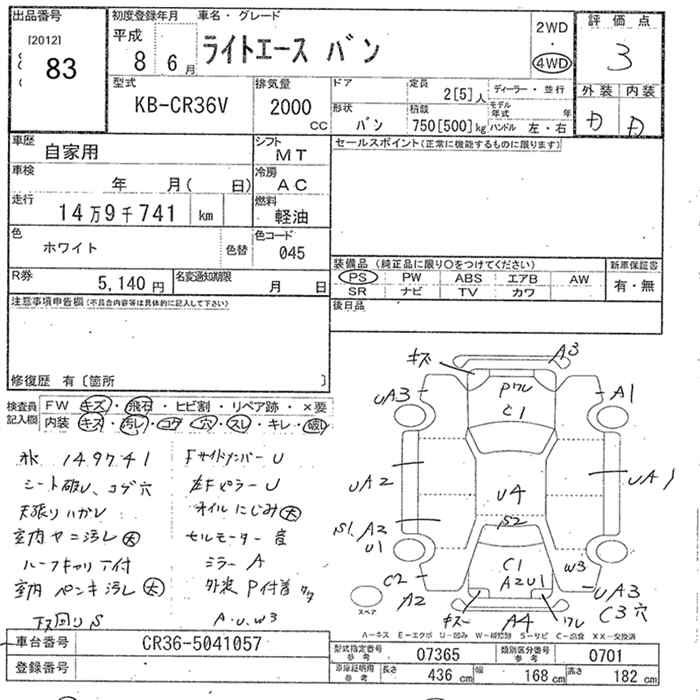 出品番号 初度登録年月 車名・グレード 2WD 評価点
[2012] 平成 ・
83 8年 6月 ライトエース バン 4WD 3
型式 排気量 ドア 定員 2[5]人 ディーラー・並行 外装 内装
KB-CR36V 2000 CC 形状 バン 積載 750[500]kg モデル年式 年 ハンドル 左・右 D D
車歴 自家用 シフト MT セールスポイント(正常に機能するものに限ります)
車検 年 月( 日) 冷房 AC
走行 14万9千741 km 燃料 軽油
色 ホワイト 色替 色コード 045
装備品 (純正品に限り○をつけてください) 新車保証書
R券 5,140円 名変通知期限 月 日 PS PW ABS エアB AW 有・無
SR ナビ TV カワ
注意事項申告欄(不具合内容等は具体的に記入して下さい) 後日品
修復歴 有〔箇所 〕
検査員 FW キズ・飛石・ヒビ割・リペア跡・×要
記入欄 内装 キズ・汚レ・コゲ・穴・スレ・キレ・破レ
149741 FサイドメンバーU
シート破レ、コゲ穴 左FピラーU
天張リハガレ オイルにじみ大
室内ヤニ汚レ大 セルモーター音
ルーフキャリア付 ミラーA
室内ペンキ汚レ大 外装P付着
下回りS A・U・W3
キズ A3
UA3 Pワレ A1
C1
UA2 U4 UA1
S1 A2 S2
U1 C1 W3
C2 A2U1 UA3
A2 キズ A4 ワレ C3穴
スペア
A-キズ E-エクボ U-凹み W-補修跡 S-サビ C-腐食 XX-交換済
車台番号 CR36-5041057 型式指定番号 参考 07365 類別区分番号 参考 0701
登録番号 車庫証明用 参考 長さ 436cm 幅 168cm 高さ 182cm